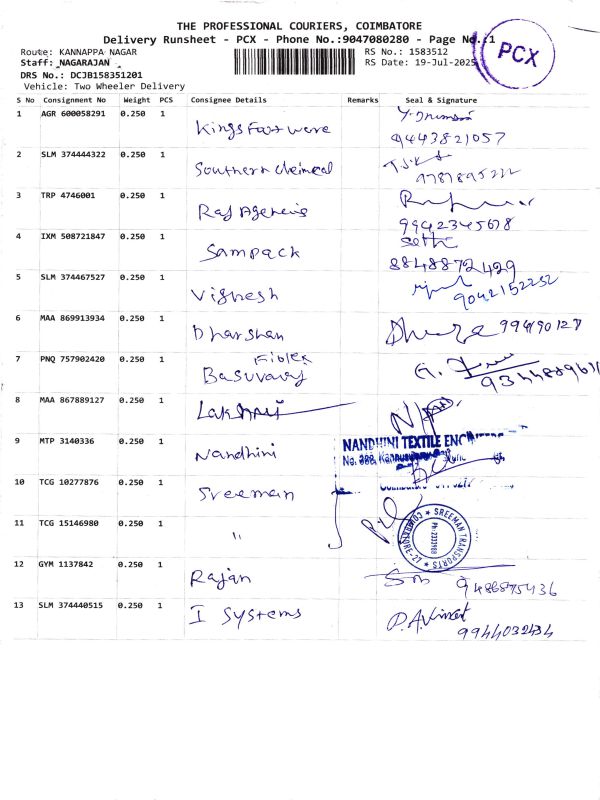 THE PROFESSIONAL COURIERS, COIMBATORE
Delivery Runsheet - PCX - Phone No.:9047080280 - Page No.:1
Route: KANNAPPA NAGAR RS No.: 1583512
Staff: NAGARAJAN RS Date: 19-Jul-2025
DRS No.: DCJB158351201
Vehicle: Two Wheeler Delivery
PCX
S No Consignment No Weight PCS Consignee Details Remarks Seal & Signature
1 AGR 600058291 0.250 1 Kings Fast were
9443821057
2 SLM 374444322 0.250 1 Southern chemical
9787895222
3 TRP 4746001 0.250 1 Raj Agencis
9942345678
4 IXM 508721847 0.250 1 Sampack Sethi
8848872429
5 SLM 374467527 0.250 1 Vignesh
9042152252
6 MAA 869913934 0.250 1 Dharshan
7 PNQ 757902420 0.250 1 Basuvaraj
8 MAA 867889127 0.250 1 Lakshmi
9 MTP 3140336 0.250 1 Nandhini
NANDHINI TEXTILE
No. 388,
10 TCG 10277876 0.250 1 Sreeman
11 TCG 15146980 0.250 1 "
SREEMAN TRANSPORTS
COIMBATORE-27
12 GYM 1137842 0.250 1 Rajan
9486875436
13 SLM 374440515 0.250 1 I Systems P.A.Vincet
9944032434